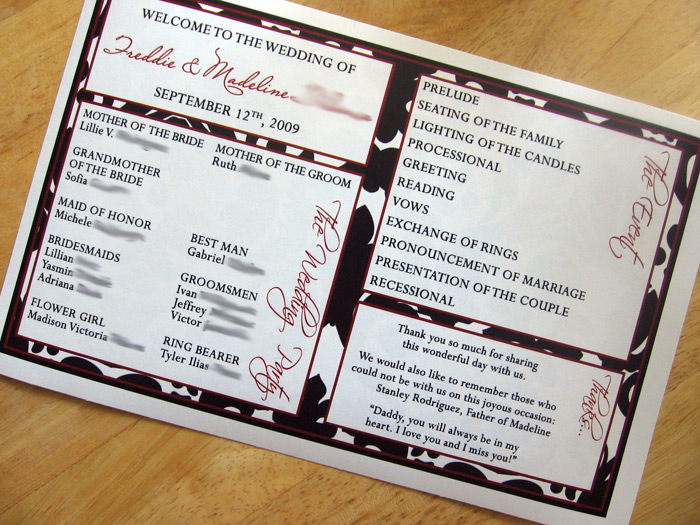 WELCOME TO THE WEDDING OF
Freddie & Madeline
SEPTEMBER 12TH, 2009
MOTHER OF THE BRIDE
Lillie V.
MOTHER OF THE GROOM
Ruth
GRANDMOTHER
OF THE BRIDE
Sofia
MAID OF HONOR
Michele
BRIDESMAIDS
Lillian
Yasmin
Adriana
FLOWER GIRL
Madison Victoria
BEST MAN
Gabriel
GROOMSMEN
Ivan
Jeffrey
Victor
RING BEARER
Tyler Ilias
The Wedding Party
PRELUDE
SEATING OF THE FAMILY
LIGHTING OF THE CANDLES
PROCESSIONAL
GREETING
READING
VOWS
EXCHANGE OF RINGS
PRONOUNCEMENT OF MARRIAGE
PRESENTATION OF THE COUPLE
RECESSIONAL
The Event
Thank you so much for sharing
this wonderful day with us.
We would also like to remember those who
could not be with us on this joyous occasion:
Stanley Rodriguez, Father of Madeline
"Daddy, you will always be in my
heart. I love you and I miss you!"
Thanks...